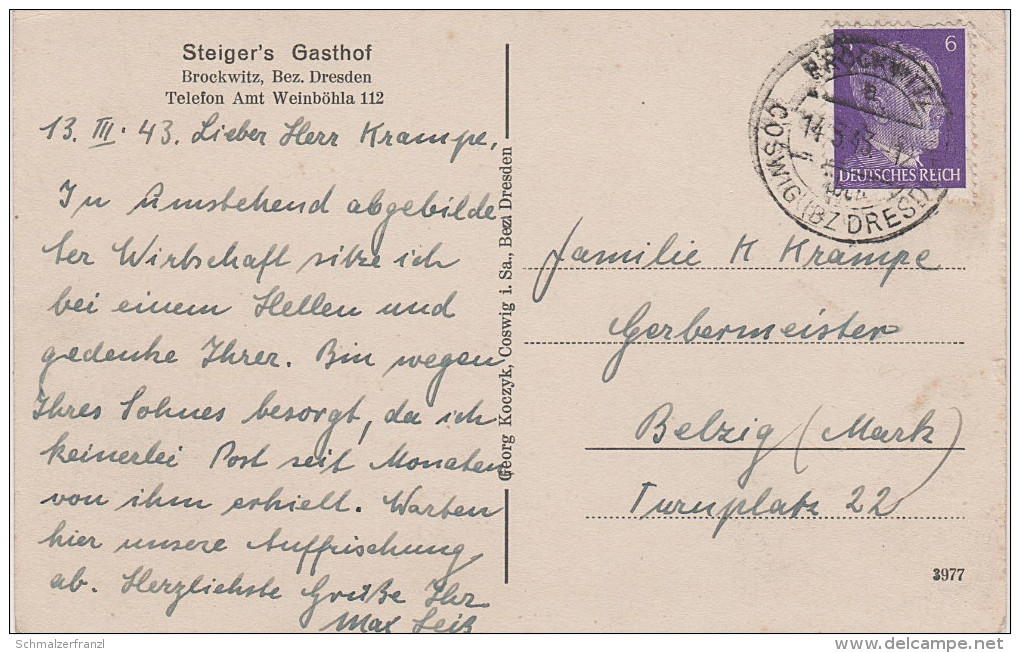 Steiger's Gasthof
Brockwitz, Bez. Dresden
Telefon Amt Weinböhla 112
13. III. 43. Lieber Herr Krampe,
In Umstehend abgebilde
ter Wirtschaft sitze ich
bei einem Hellen und
gedenke Ihrer. Bin wegen
Ihres Sohnes besorgt, da ich
keinerlei Post seit Monaten
von ihm erhielt. Warten
hier unsere Auffrischung
ab. Herzlichste Grüße Ihr
Max
Georg Koczyk, Coswig i. Sa., Bez. Dresden
6
DEUTSCHES REICH
BROCKWITZ
COSWIG (BZ DRESD
Familie K Krampe
Gerbermeister
Belzig (Mark)
Turnplatz 22
3977
Schmalzerfranzl
delcampe.net